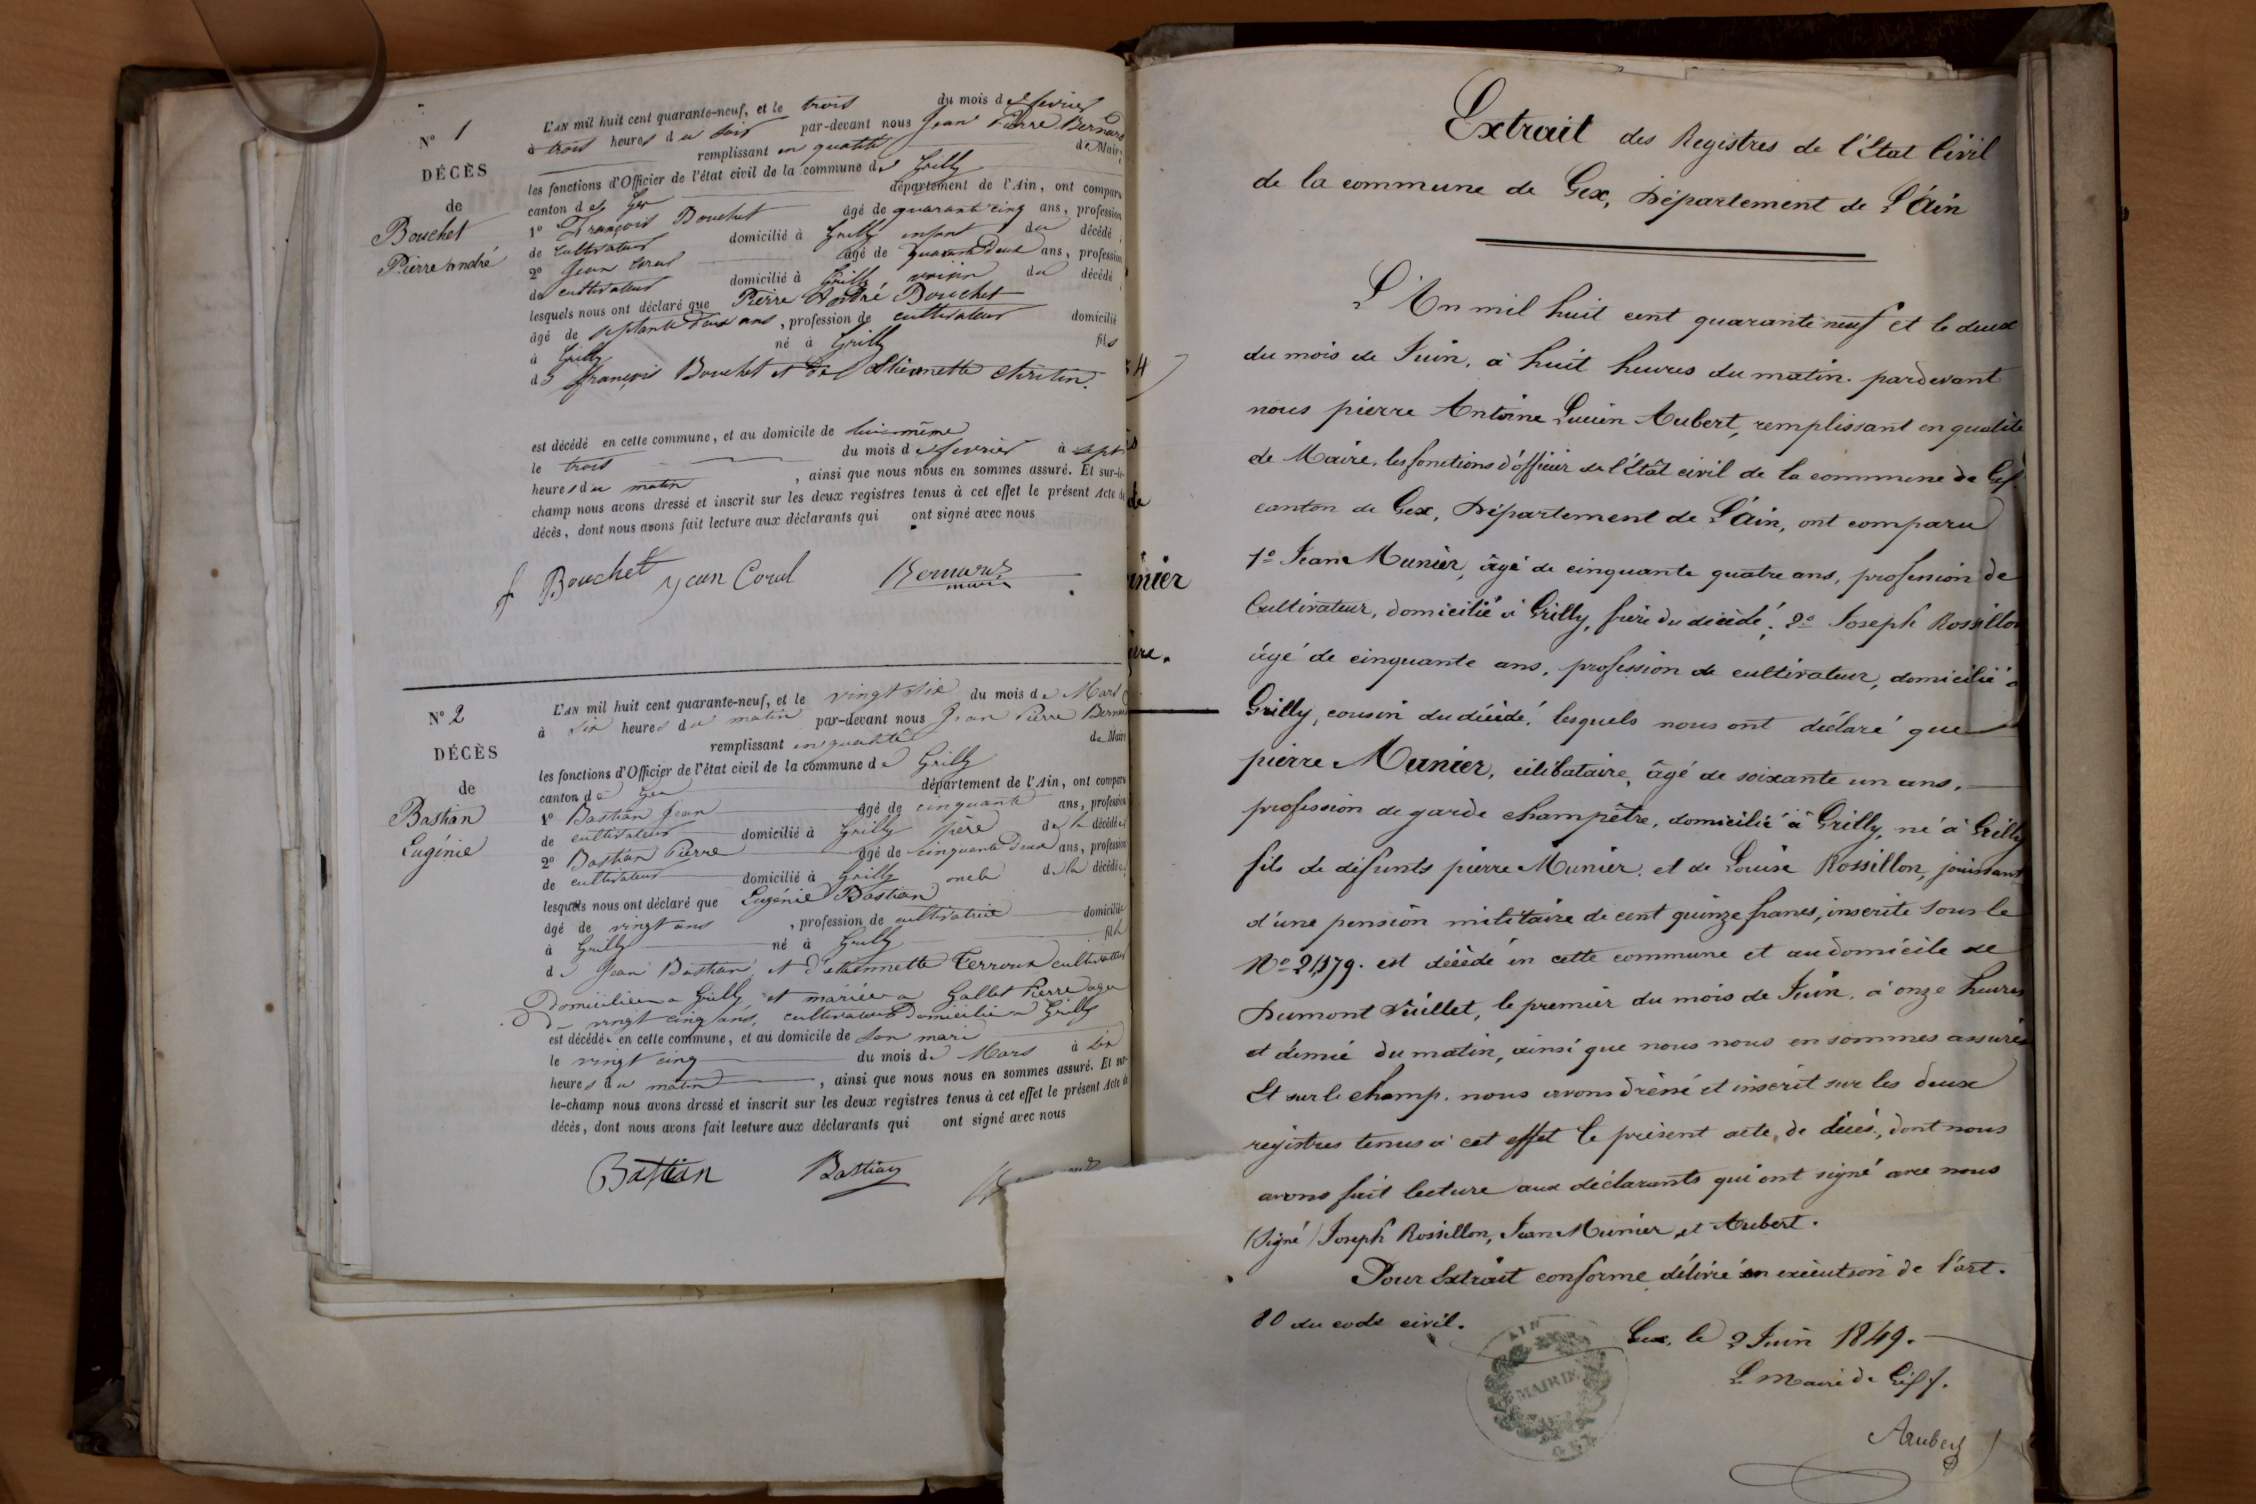 N° 1
DÉCÈS
de
Bouchet
Pierre André
L'AN mil huit cent quarante-neuf, et le trois du mois de fevrier
à trois heures du soir par-devant nous Jean Pierre Bernard
remplissant en qualité de Maire
les fonctions d'Officier de l'état civil de la commune de Grilly
canton de Gex département de l'Ain, ont comparu
1° François Bouchet âgé de quarante cinq ans, profession
de cultivateur domicilié à Grilly enfant du décédé
2° Jean Coral âgé de quarante deux ans, profession
de cultivateur domicilié à Grilly voisin du décédé
lesquels nous ont déclaré que Pierre André Bouchet
âgé de septante deux ans, profession de cultivateur domicilié
à Grilly né à Grilly fils
de François Bouchet et de Etiennette Christin.
est décédé en cette commune, et au domicile de lui-même
le trois du mois de fevrier à sept
heures du matin, ainsi que nous nous en sommes assuré. Et sur-le-
champ nous avons dressé et inscrit sur les deux registres tenus à cet effet le présent Acte de
décès, dont nous avons fait lecture aux déclarants qui ont signé avec nous
f Bouchet Jean Coral Bernard
maire
N° 2
DÉCÈS
de
Bastian
Eugénie
L'AN mil huit cent quarante-neuf, et le vingt six du mois de Mars
à six heures du matin par-devant nous Jean Pierre Bernard
remplissant en qualité de Maire
les fonctions d'Officier de l'état civil de la commune de Grilly
canton de Gex département de l'Ain, ont comparu
1° Bastian Jean âgé de cinquante ans, profession
de cultivateur domicilié à Grilly père de la décédée
2° Bastian Pierre âgé de cinquante deux ans, profession
de cultivateur domicilié à Grilly oncle de la décédée
lesquels nous ont déclaré que Eugénie Bastian
âgé de vingt ans, profession de cultivatrice domicilié
à Grilly né à Grilly fille
de Jean Bastian et d'etiennette Terroux cultivateur
Domiciliée a Grilly et mariée a Gallet Pierre agé
de vingt cinq ans, cultivateur Domicilié a Grilly
est décédée en cette commune, et au domicile de son mari
le vingt cinq du mois de Mars à six
heures du matin, ainsi que nous nous en sommes assuré. Et sur-
le-champ nous avons dressé et inscrit sur les deux registres tenus à cet effet le présent Acte de
décès, dont nous avons fait lecture aux déclarants qui ont signé avec nous
Bastian Bastian
Extrait des Registres de l'Etat Civil
de la commune de Gex, Département de L'Ain
L'An mil huit cent quarante neuf et le deux
du mois de Juin, à huit heures du matin. pardevant
nous pierre Antoine Lucien Aubert, remplissant en qualité
de Maire, les fonctions d'officier de l'État civil de la commune de Gex
canton de Gex, Département de L'Ain, ont comparu
1° Jean Munier, âgé de cinquante quatre ans, profession de
Cultivateur, domicilié à Grilly, frère du décédé; 2° Joseph Rossillon
âgé de cinquante ans, profession de cultivateur, domicilié à
Grilly, cousin du décédé, lesquels nous ont déclaré que
pierre Munier, célibataire, âgé de soixante un ans,
profession de garde champêtre, domicilié à Grilly, né à Grilly
fils de défunts pierre Munier, et de Louise Rossillon, jouissant
d'une pension militaire de cent quinze francs, inscrite sous le
N° est décédé en cette commune et au domicile de
Dumont Vuillet, le premier du mois de Juin, à onze heures
et demie du matin, ainsi que nous nous en sommes assuré
Et sur le champ. nous avons dressé et inscrit sur les deux
registres tenus à cet effet le présent acte, de décès, dont nous
avons fait lecture aux déclarants qui ont signé avec nous
(Signé) Joseph Rossillon, Jean Munier, et Aubert.
Pour Extrait conforme délivré en exécution de l'art.
80 du code civil.
Gex, le 2 Juin 1849.
Le Maire de Gex.
Aubert
AIN
MAIRIE
GEX